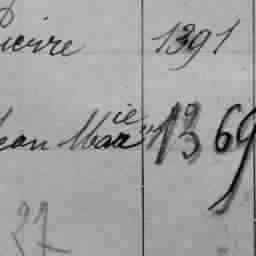 Pierre 1391
Jean Marie 1369
37